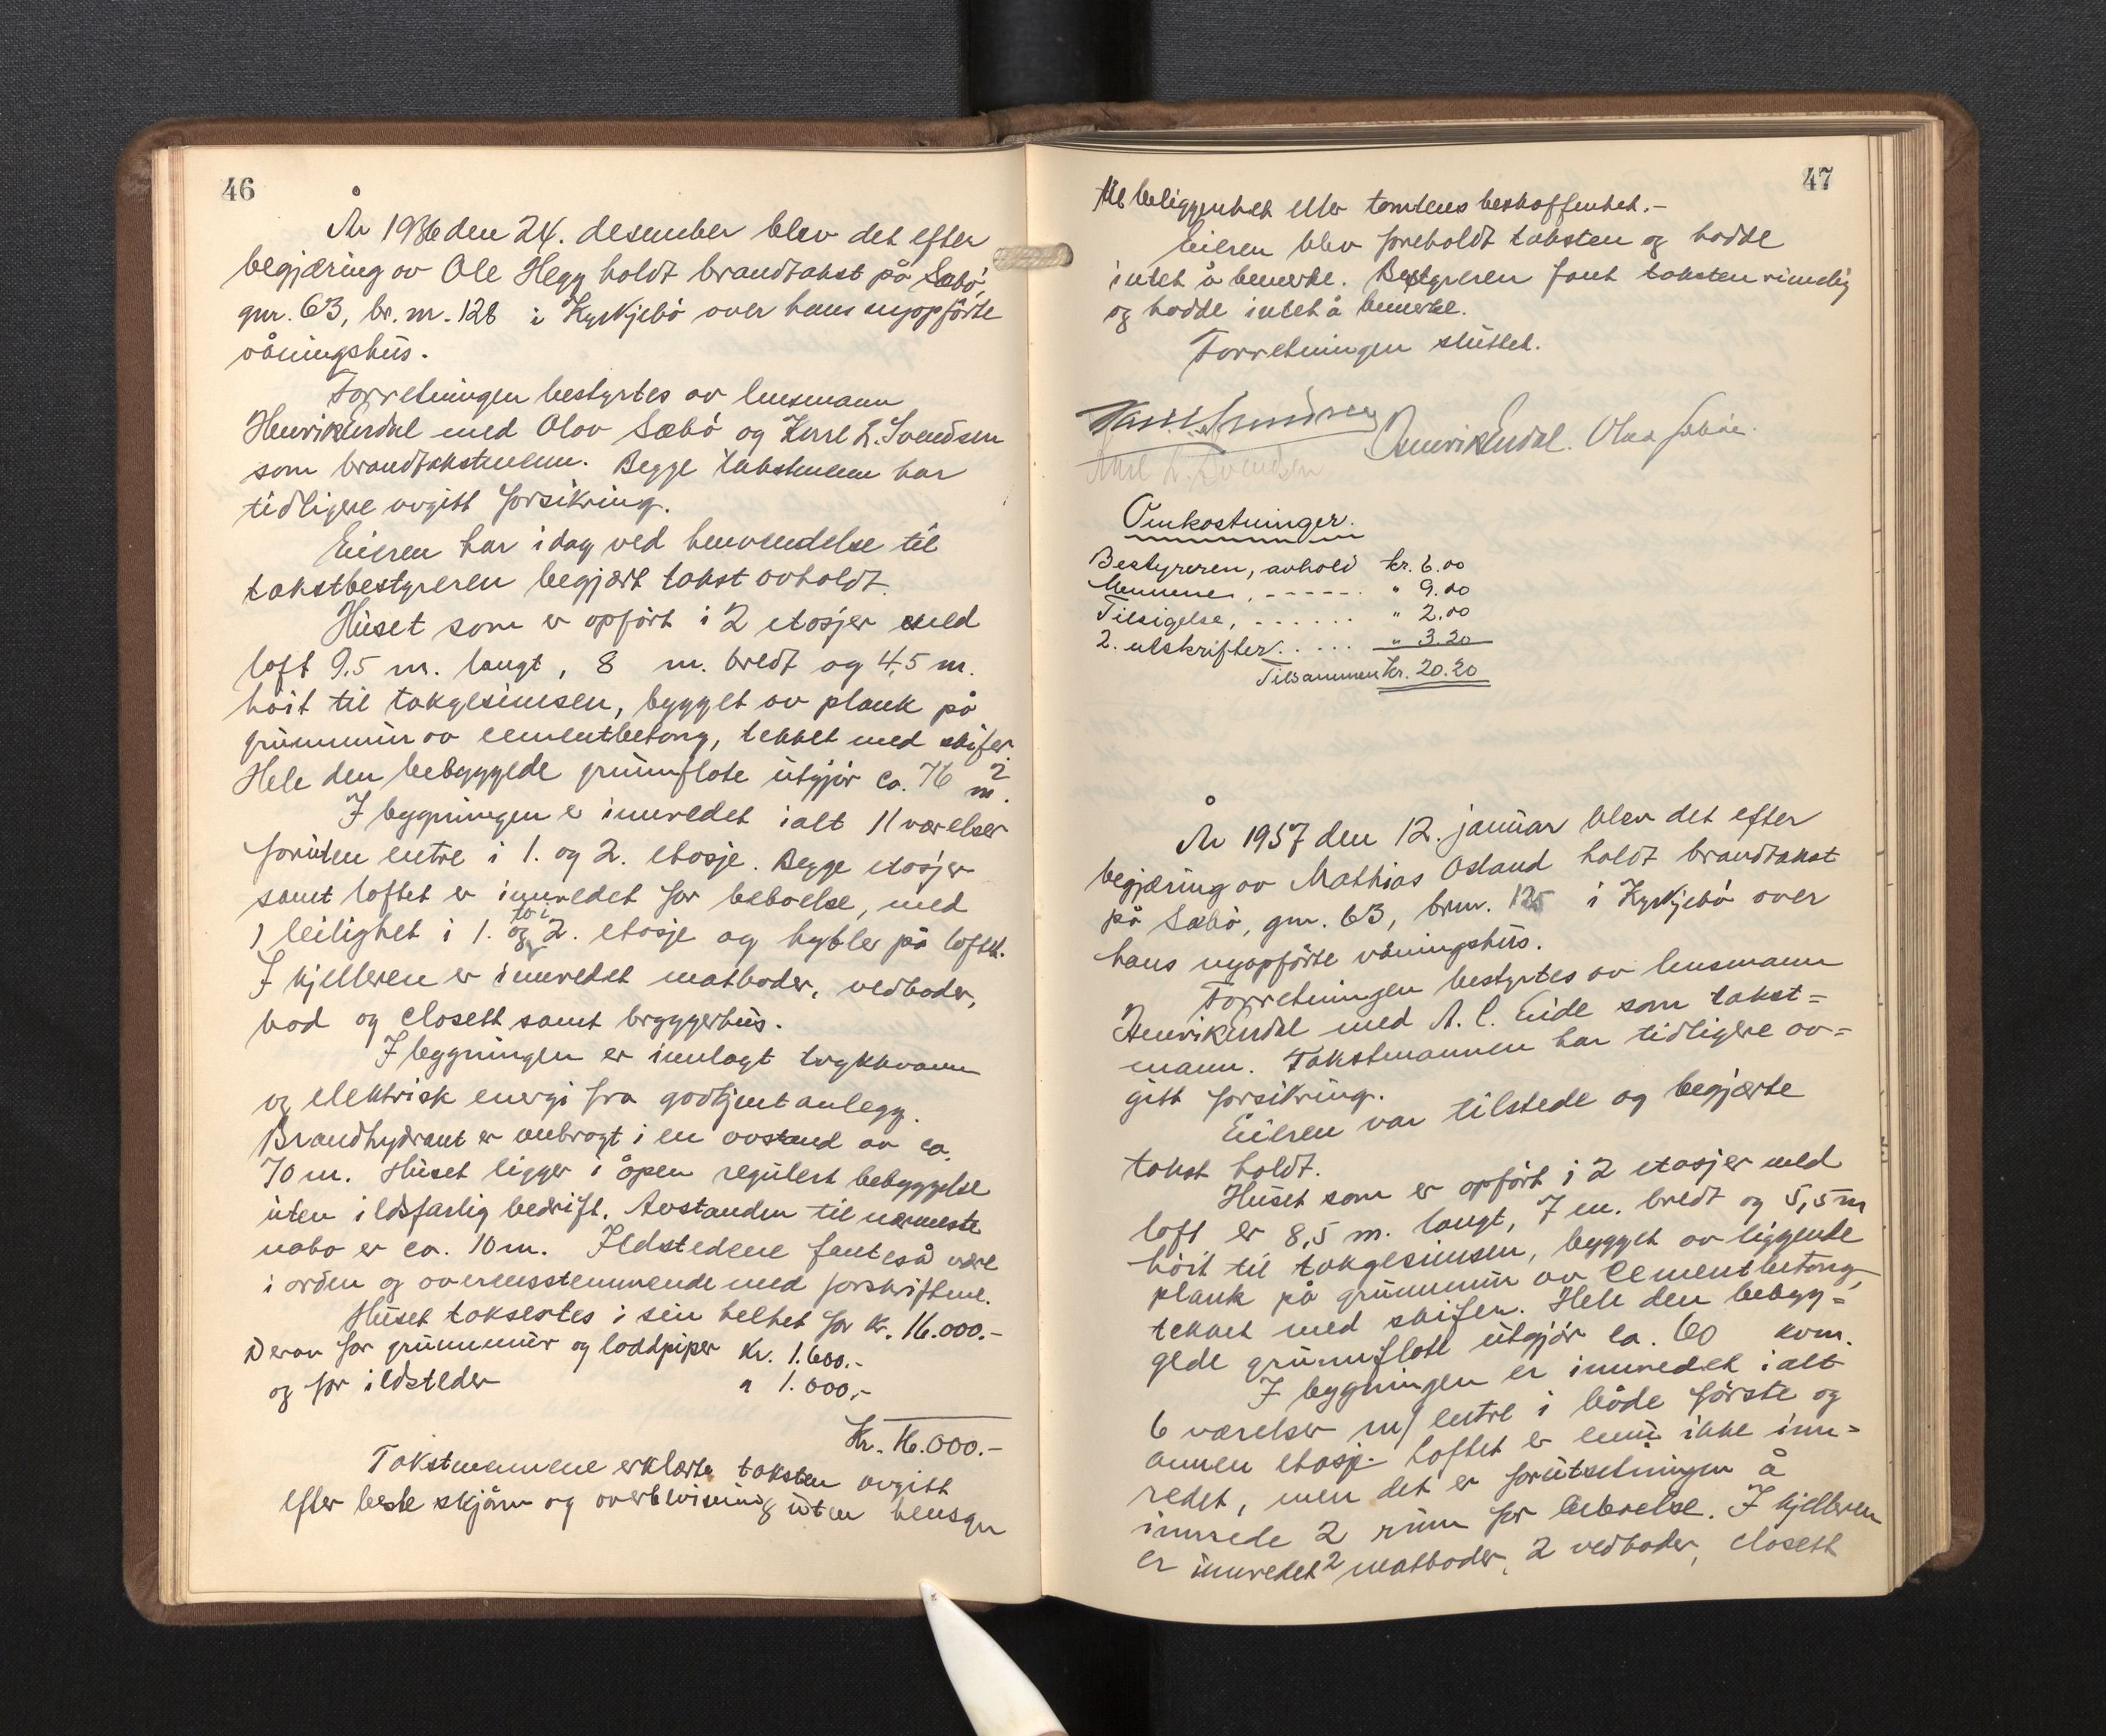 46
År 1936 den 24. desember blev det efter
begjæring av Ole Hegg holdt brandtakst på Sæbø,
gnr. 63, br. nr. 128 i Kyrkjebø over hans nyopførte
våningshus.
Forretningen bestyrtes av lensmann
Henrik Erdal med Olav Sæbø og Karl L. Svendsen
som brandtakstmenn. Begge takstmenn har
tidligere avgitt forsikring.
Eieren har idag ved henvendelse til
takstbestyreren begjært takst avholdt.
Huset som er opført i 2 etasjer med
loft 9,5 m. langt, 8 m. bredt og 4,5 m.
høit til takgesimsen, bygget av plank på
grunnmur av cementbetong, tekket med skifer.
Hele den bebyggede grunnflate utgjør ca. 76 m².
I bygningen er innredet ialt 11 værelser
foruten entre i 1. og 2. etasje. Begge etasjer
samt loftet er innredet for beboelse, med
1 leilighet i 1. og to i 2. etasje og hybler på loftet.
I kjelleren er innredet matboder, vedboder,
bod og closett samt bryggerhus.
I bygningen er innlagt trykkvann
og elektrisk energi fra godkjent anlegg.
Brandhydrant er anbragt i en avstand av ca.
70 m. Huset ligger i åpen regulert bebyggelse
uten ildsfarlig bedrift. Avstanden til nærmeste
nabo er ca. 10 m. Ildstedene fantes å være
i orden og overensstemmende med forskriftene.
Huset taksertes i sin helhet for kr. 16.000.-
Derav for grunnmur og loddpiper kr. 1.600.-
og for ildsteder " 1.000,-
Kr. 16.000.-
Takstmennene erklærte taksten avgitt
efter beste skjønn og overbevisning uten hensyn
47
til beliggenhet eller tomtens beskaffenhet.-
Eieren blev foreholdt taksten og hadde
intet å bemerke. Bestyreren fant taksten rimelig
og hadde intet å bemerke.
Forretningen sluttet.
Karl L. Svendsen Henrik Erdal. Olav Sæbø.
Karl L. Svendsen
Omkostninger.
Bestyreren, avhold kr. 6.00
Mennene, - - - - - - " 9.00
Tilsigelse, . . . . . . " 2.00
2. utskrifter . . . . . " 3.20
Tilsammen kr. 20.20
År 1937 den 12. januar blev det efter
begjæring av Mathias Osland holdt brandtakst
på Sæbø, gnr. 63, brnr. 125 i Kyrkjebø over
hans nyopførte våningshus.
Forretningen bestyrtes av lensmann
Henrik Erdal med A. C. Eide som takst=
mann. Takstmannen har tidligere av=
gitt forsikring.
Eieren var tilstede og begjærte
takst holdt.
Huset som er opført i 2 etasjer med
loft er 8,5 m. langt, 7 m. bredt og 5,5 m
høit til takgesimsen, bygget av liggende
plank på grunnmur av cementbetong,
tekket med skifer. Hele den bebyg=
gede grunnflate utgjør ca. 60 kvm.
I bygningen er innredet ialt
6 værelser m/ entre i både første og
annen etasje. Loftet er ennu ikke inn=
redet, men det er forutsetningen å
innrede 2 rum for beboelse. I kjelleren
er innredet 2 matboder, 2 vedboder, closett